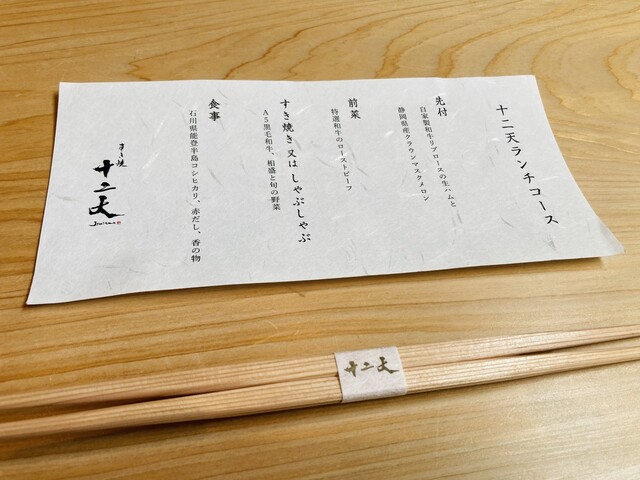 十二天ランチコース
先付
自家製和牛リブロースの生ハムと
静岡県産クラウンマスクメロン
前菜
特選和牛のローストビーフ
すき焼き又はしゃぶしゃぶ
A5黒毛和牛、相盛と旬の野菜
食事
石川県能登半島コシヒカリ、赤だし、香の物
すき焼
十二天
十二天